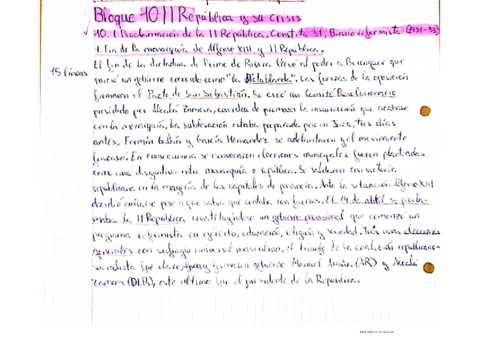 Bloque 10 II República y su crisis
10.1 Proclamación de la II República, Constitu 31, Bienio reformista (1931-33)
1. Fin de la monarquía de Alfonso XIII y II República.
El fin de la dictadura de Primo de Rivera llevó al poder a Berenguer que
15 líneas
inició un gobierno conocido como "la Dictablanda". Las fuerzas de la oposición
firmaron el Pacto de San Sebastián. Se creó un Comité Revolucionario
presidido por Alcalá Zamora, con idea de promover la insurrección que acabase
con la monarquía. La sublevación estaba preparada para en Jaca, tres días
antes, Fermín Galán y García Hernández se adelantaron y el movimiento
fracasó. En consecuencia se convocaron elecciones municipales fueron planteadas
como una disyuntiva entre monarquía o república. Se saldaron con victoria
republicana en la mayoría de las capitales de provincia. Ante la situación Alfonso XIII
decidió exiliarse
El 14 de abril se procla-
maba la II República, constituyéndose un gobierno provisional que comenzó un
programa reformista en ejército, educación, religión y sociedad. Tras unas elecciones
generales con sufragio universal masculino, el triunfo de la coalición republicano-
socialista fue claro, y formaron gobierno Manuel Azaña (AR) y Alcalá
Zamora (DLR), este último fue el presidente de la República.